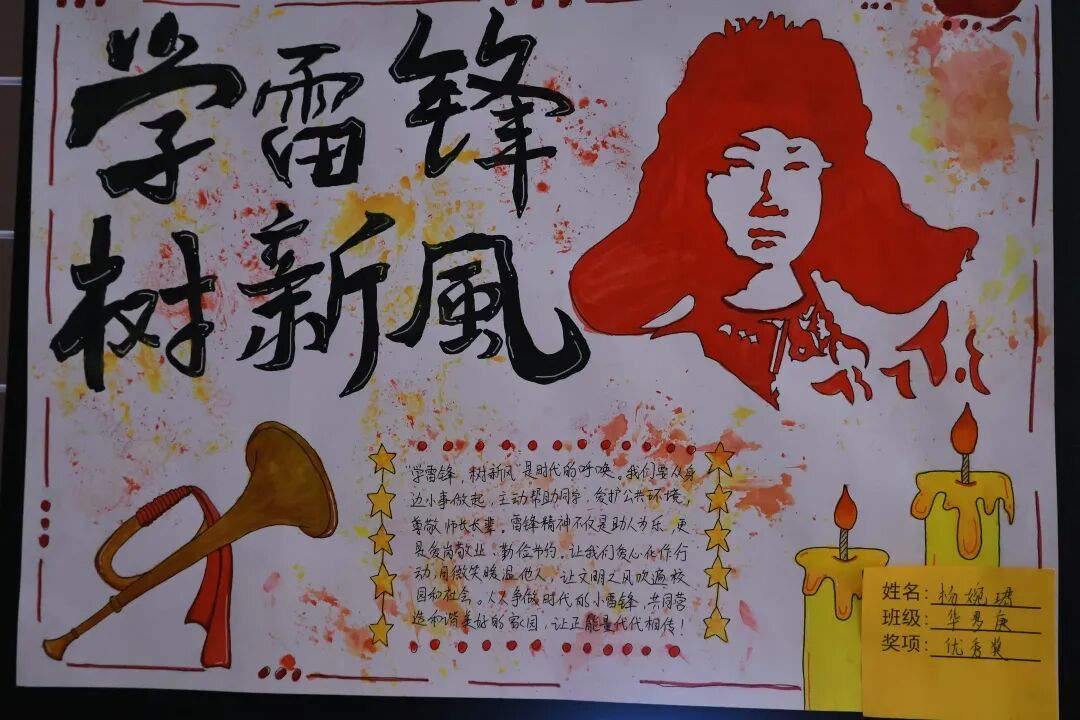 学雷锋
树新風
"学雷锋，树新风"是时代的呼唤。我们要从身
边小事做起，主动帮助同学，爱护公共环境，
尊敬师长长辈。雷锋精神不仅是助人为乐，更
是爱岗敬业，勤俭节约，让我们爱心化作行
动，用微笑暖温他人，让文明之风吹遍校
园和社会。人人争做时代的小雷锋，共同营
造和谐美好的家园，让正能量代代相传！
姓名：杨婉
班级：华
奖项：优秀奖